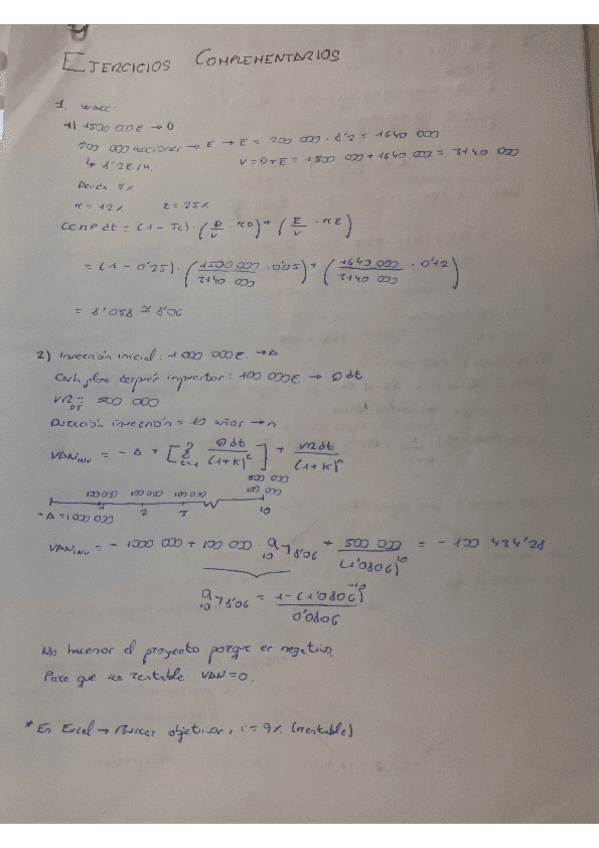 EJERCICIOS COMPLEMENTARIOS
1. WACC.
1) 1500 000€ → D
200 000 acciones → E → E = 200 000 · 8'2 = 1640 000
↳ 8'2€/u. V = D+E = 1500 000 + 1640 000 = 3140 000
Deuda 5%
K = 12% t = 25%
CCMP dt = (1 - Tc) · (D/V · KD) + (E/V · KE)
= (1 - 0'25) · (1500 000/3140 000 · 0'05) + (1640 000/3140 000 · 0'12)
= 8'058 ≅ 8'06
2) Inversión inicial: 1 000 000€. → A
Cash flow después impuestos: 100 000€ → Q dt
VR dt = 500 000
Duración inversión = 10 años → n
VAN inv = - A + [Σ Q dt/(1+K)^t] + VR dt/(1+K)^n
500 000
100 000 100 000 100 000 100 000
2 3 10
-A = 1000 000
VAN inv = - 1000 000 + 100 000 · a 10¬8'06 + 500 000/(1'0806)^10 = - 100 434'28
a 10¬8'06 = 1-(1'0806)^-10/0'0806
No hacemos el proyecto porque es negativo.
Para que sea rentable VAN=0.
* En Excel → Buscar objetivos, i = 9% (rentable)